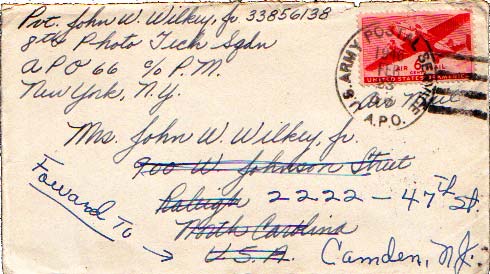 Pvt. John W. Wilkey, Jr 33856138
8th Photo Tech Sqdn
A P O 66 c/o P.M.
New York, N.Y.
U.S. ARMY POSTAL SERVICE
A.P.O.
AIR MAIL
6 CENTS
UNITED STATES OF AMERICA
Air Mail
Mrs. John W. Wilkey, Jr.
900 W. Johnson Street
Raleigh 2222-47th St.
North Carolina
U.S.A. Camden, N.J.
Foward To